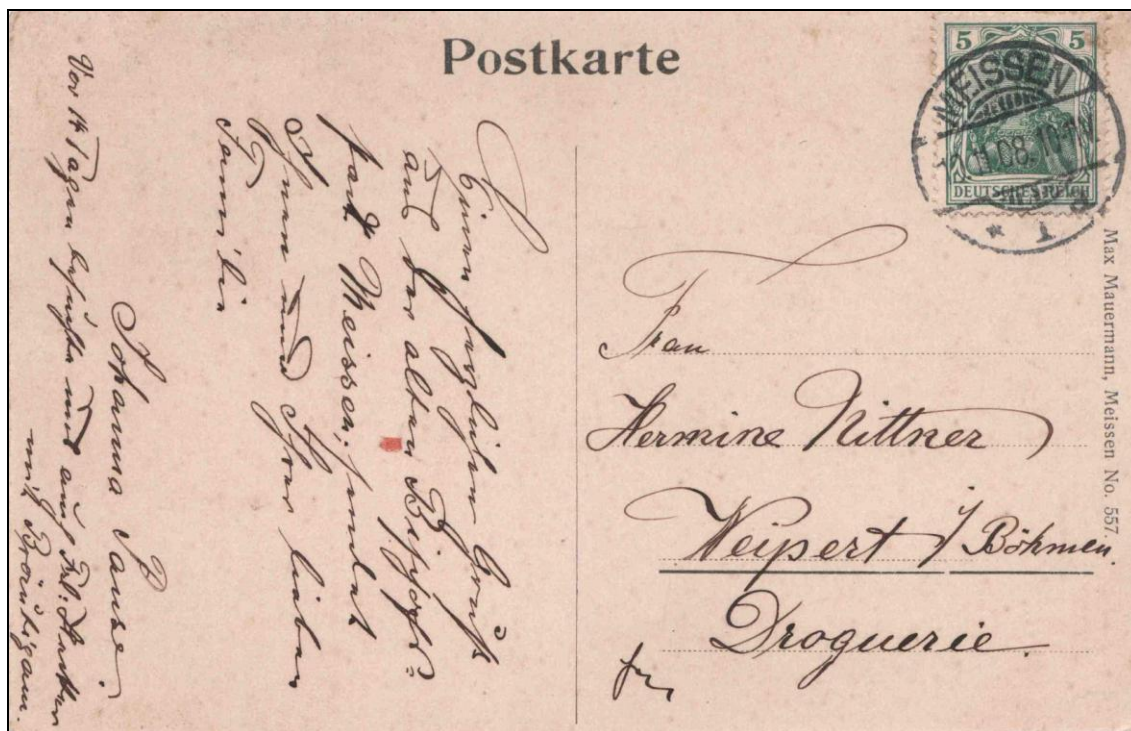 Postkarte
5 5
MEISSEN
DEUTSCHES REICH
* 1
Max Mauermann, Meissen No. 557.
Frau
Hermine Nittner
Weipert i/Böhmen.
Droguerie.
Einen herzlichen Gruß
aus der alten Bischofs=
stadt Meissen, sendet
Ihnen und Ihrer lieben
Familie
Johanna Pause.
Vor 14 Tagen besuchte uns auch Frl.
mit Bräutigam.